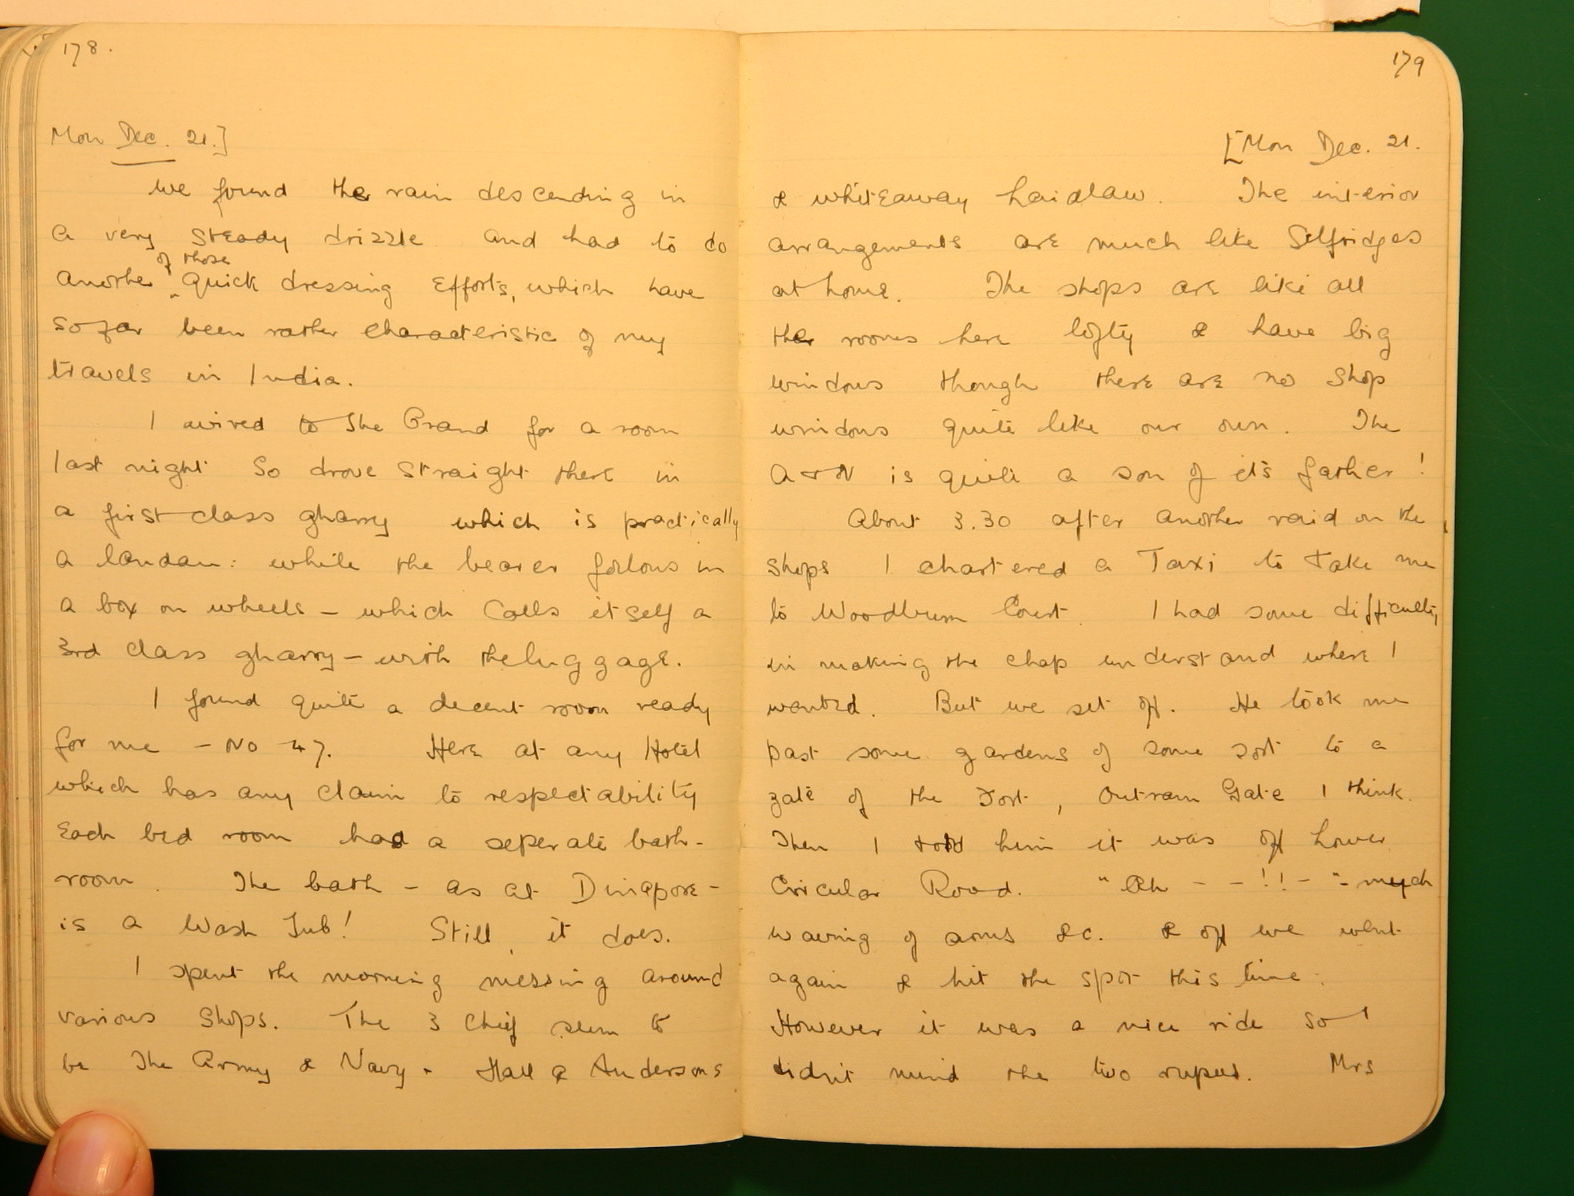 178.
Mon Dec. 21.]
We found the rain descending in
a very steady drizzle and had to do
of those
another quick dressing efforts, which have
so far been rather characteristic of my
travels in India.
I wired to The Grand for a room
last night so drove straight there in
a first class gharry which is practically
a landau: while the bearer follows in
a box on wheels – which calls itself a
3rd class gharry – with the luggage.
I found quite a decent room ready
for me – No 47. Here at any Hotel
which has any claim to respectability
each bed room has a seperate bath-
room. The bath – as at Dinapore –
is a Wash Tub! Still, it does.
I spent the morning messing around
various shops. The 3 chief seem to
be The Army & Navy – Hall & Andersons
179
[Mon Dec. 21.
& Whiteaway Laidlaw. The interior
arrangements are much like Selfridges
at home. The shops are like all
the rooms here lofty & have big
windows though there are no shop
windows quite like our own. The
A & N is quite a son of it's father!
About 3.30 after another raid on the
shops I chartered a Taxi to take me
to Woodburn Court. I had some difficulty
in making the chap understand where I
wanted. But we set off. He took me
past some gardens of some sort to a
gate of the Fort, Outram Gate I think.
Then I told him it was off Lower
Circular Road. "Ah – – !! – " – much
waving of arms &c. & off we went
again & hit the spot this time.
However it was a nice ride so I
didn't mind the two rupees. Mrs